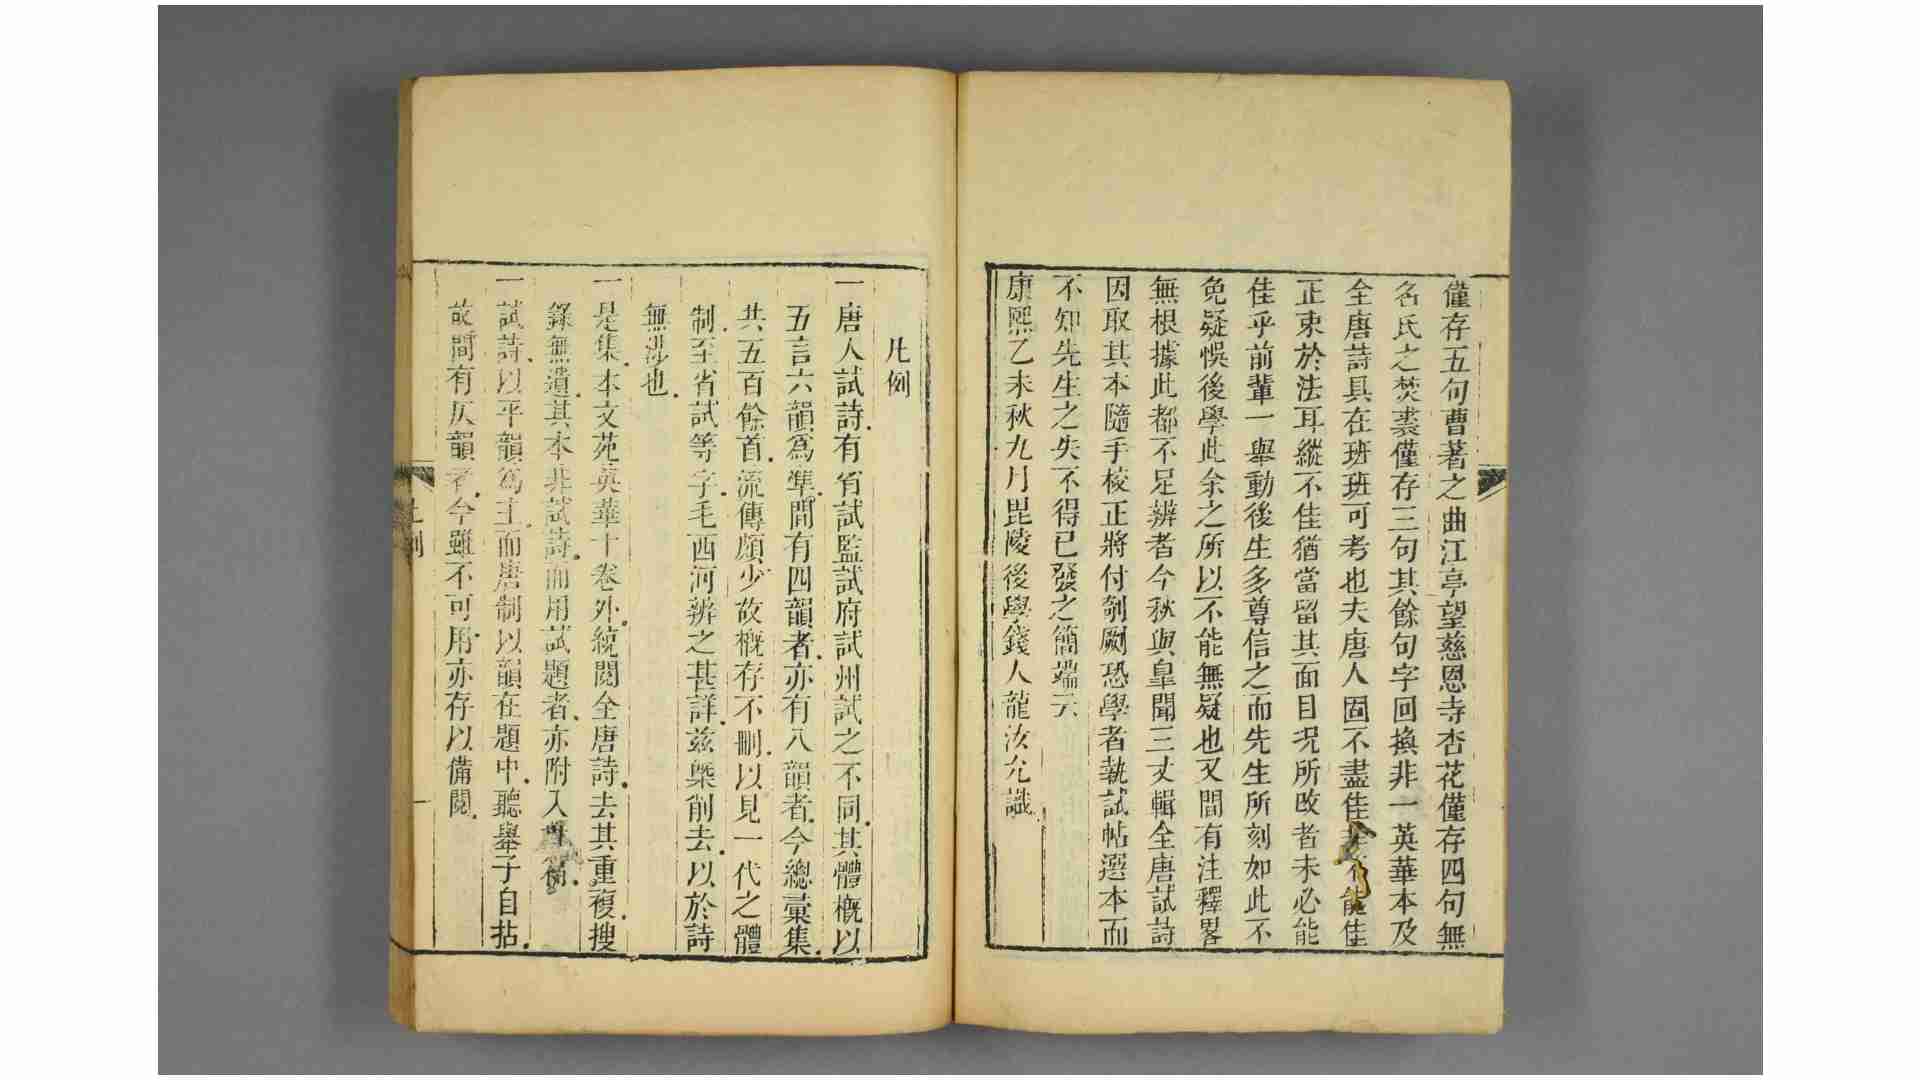 僅存五句曹著之曲江亭望慈恩寺杏花僅存四句無
名氏之焚裘僅存三句其餘句字回換非一英華本及
全唐詩具在班班可考也夫唐人固不盡佳不能佳
正束於法耳縱不佳猶當留其面目况所改者未必能
佳乎前輩一舉動後生多尊信之而先生所刻如此不
免疑悞後學此余之所以不能無疑也又間有注釋畧
無根據此都不足辨者今秋與皇聞三丈輯全唐試詩
因取其本隨手校正將付剞劂恐學者執試帖選本而
不知先生之失不得已發之簡端云
康熙乙未秋九月毘陵後學錢人龍汝允識
凡例
一唐人試詩有省試監試府試州試之不同其體槪以
五言六韻爲準間有四韻者亦有八韻者今總彙集
共五百餘首流傳頗少故槪存不刪以見一代之體
制至省試等字毛西河辨之甚詳茲槩削去以於詩
無涉也
一是集本文苑英華十卷外統閱全唐詩去其重複搜
錄無遺其本非試詩而用試題者亦附入
一試詩以平韻爲主而唐制以韻在題中聽舉子自拈
故間有仄韻者今雖不可用亦存以備閱
凡例
一